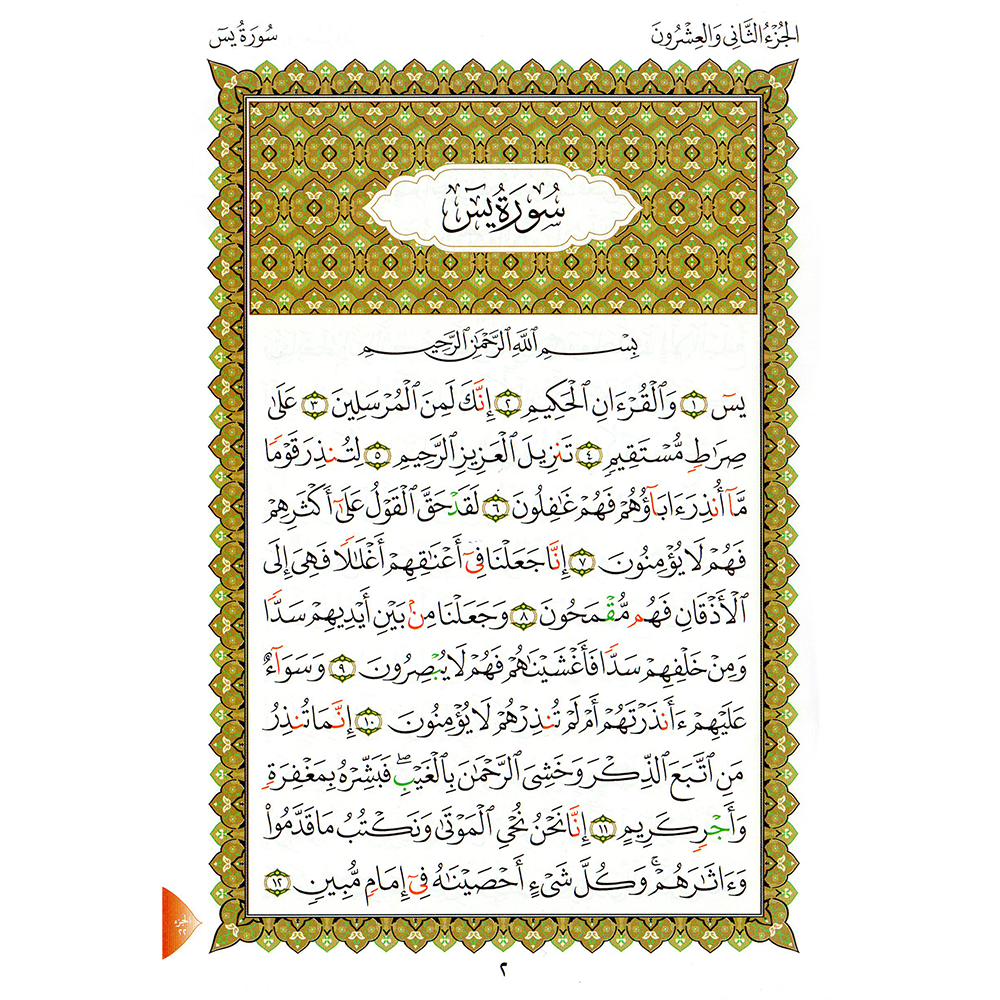 الجُزْءُ الثَّانِى وَالعِشْرُونَ
سُورَةُ يسٓ
سُورَةُ يسٓ
بِسْمِ ٱللَّهِ ٱلرَّحْمَٰنِ ٱلرَّحِيمِ
يسٓ ١ وَٱلْقُرْءَانِ ٱلْحَكِيمِ ٢ إِنَّكَ لَمِنَ ٱلْمُرْسَلِينَ ٣ عَلَىٰ
صِرَٰطٍ مُّسْتَقِيمٍ ٤ تَنزِيلَ ٱلْعَزِيزِ ٱلرَّحِيمِ ٥ لِتُنذِرَ قَوْمًا
مَّآ أُنذِرَ ءَابَآؤُهُمْ فَهُمْ غَٰفِلُونَ ٦ لَقَدْ حَقَّ ٱلْقَوْلُ عَلَىٰٓ أَكْثَرِهِمْ
فَهُمْ لَا يُؤْمِنُونَ ٧ إِنَّا جَعَلْنَا فِىٓ أَعْنَٰقِهِمْ أَغْلَٰلًا فَهِىَ إِلَى
ٱلْأَذْقَانِ فَهُم مُّقْمَحُونَ ٨ وَجَعَلْنَا مِنۢ بَيْنِ أَيْدِيهِمْ سَدًّا
وَمِنْ خَلْفِهِمْ سَدًّا فَأَغْشَيْنَٰهُمْ فَهُمْ لَا يُبْصِرُونَ ٩ وَسَوَآءٌ
عَلَيْهِمْ ءَأَنذَرْتَهُمْ أَمْ لَمْ تُنذِرْهُمْ لَا يُؤْمِنُونَ ١٠ إِنَّمَا تُنذِرُ
مَنِ ٱتَّبَعَ ٱلذِّكْرَ وَخَشِىَ ٱلرَّحْمَٰنَ بِٱلْغَيْبِ ۖ فَبَشِّرْهُ بِمَغْفِرَةٍ
وَأَجْرٍ كَرِيمٍ ١١ إِنَّا نَحْنُ نُحْىِ ٱلْمَوْتَىٰ وَنَكْتُبُ مَا قَدَّمُوا۟
وَءَاثَٰرَهُمْ ۚ وَكُلَّ شَىْءٍ أَحْصَيْنَٰهُ فِىٓ إِمَامٍ مُّبِينٍ ١٢
الجزء
٢٢
٢